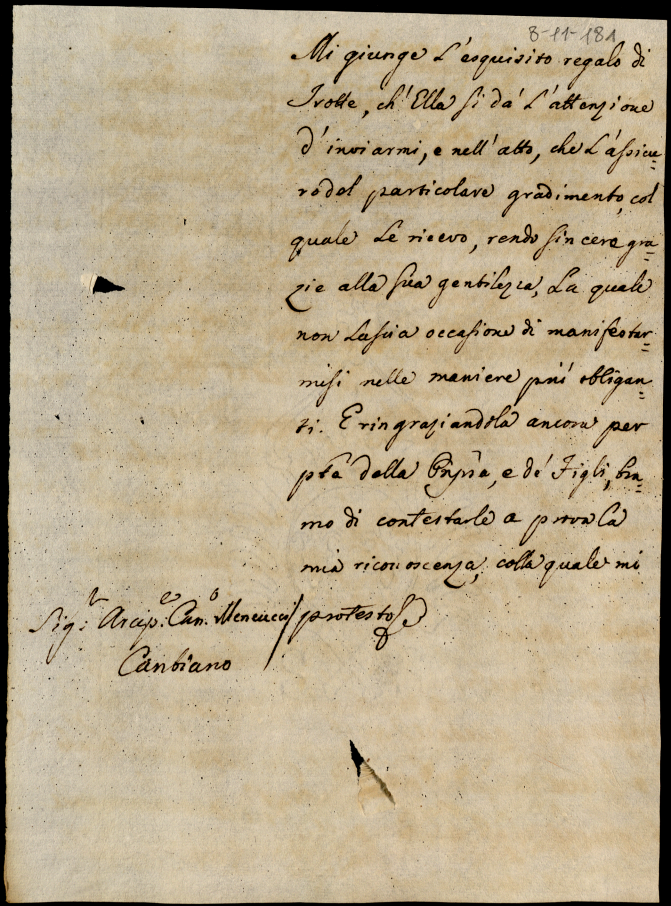 8-11-181
Mi giunge L'esquisito regalo di
Trotte, ch'Ella si dà L'attenzione
d'inviarmi, e nell'atto, che L'assicu=
ro del particolare gradimento, col
quale Le ricevo, rendo sincere gra=
zie alla sua gentilezza, La quale
non Lascia occasione di manifestar=
misi nelle maniere più obligan=
ti. E ringraziandola ancora per
pte della Pnpssa, e de' Figli, bra=
mo di contestarle a prova La
mia riconoscenza, colla quale mi
Sig:r Arcip:e Can:o Mencucci / protesto
Cantiano